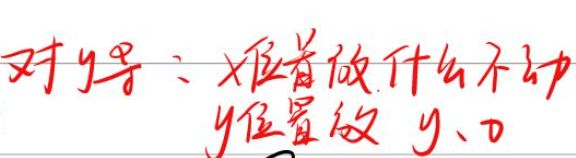 对y导：x位置放什么不动
y位置放 y、0